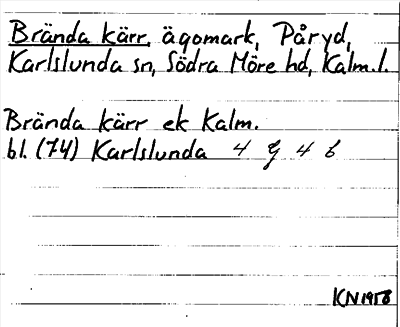 Brända kärr, ägomark, Påryd,
Karlslunda sn, Södra Möre hd, Kalm. l.
Brända kärr ek Kalm.
bl. (74) Karlslunda 4 G 4 b
KN1958